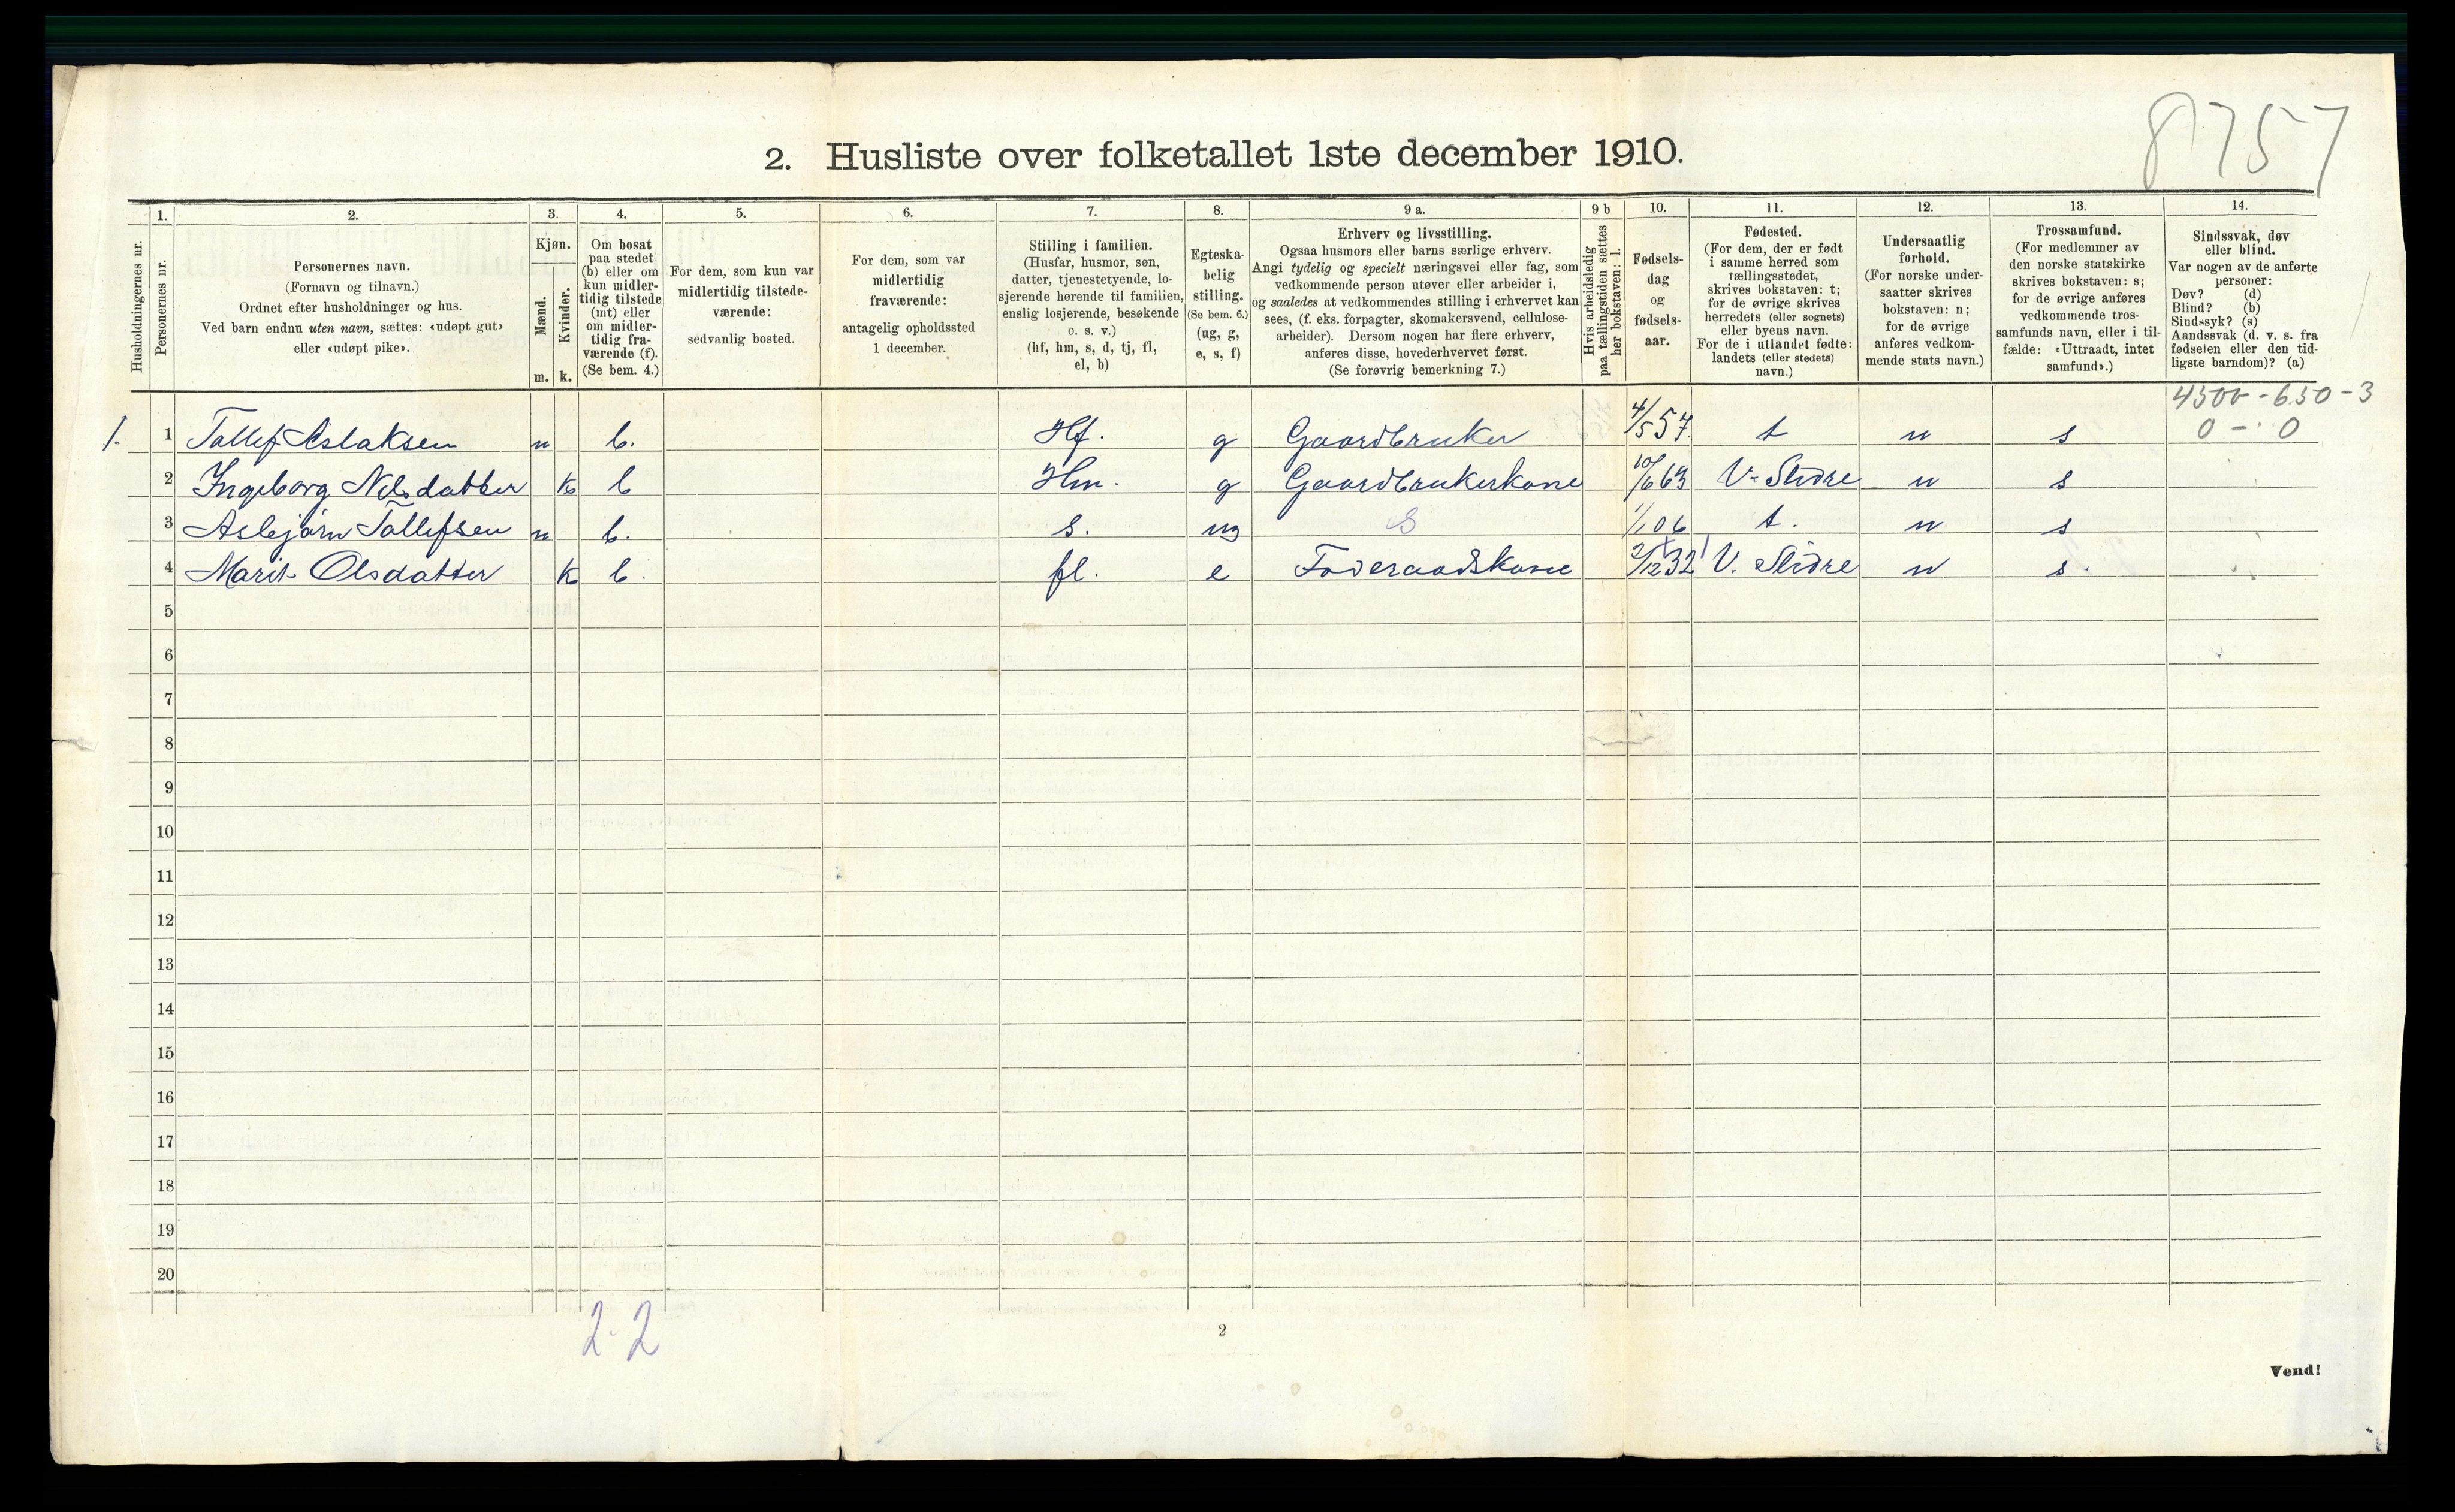 8757
2. Husliste over folketallet 1ste december 1910.
Husholdningernes nr.
1.
Personernes nr.
2.
Personernes navn.
(Fornavn og tilnavn.)
Ordnet efter husholdninger og hus.
Ved barn endnu uten navn, sættes: «udøpt gut»
eller «udøpt pike».
3.
Kjøn.
Mænd.
Kvinder.
m. k.
4.
Om bosat
paa stedet
(b) eller om
kun midler-
tidig tilstede
(mt) eller
om midler-
tidig fra-
værende (f).
(Se bem. 4.)
5.
For dem, som kun var
midlertidig tilstede-
værende:
sedvanlig bosted.
6.
For dem, som var
midlertidig
fraværende:
antagelig opholdssted
1 december.
7.
Stilling i familien.
(Husfar, husmor, søn,
datter, tjenestetyende, lo-
sjerende hørende til familien,
enslig losjerende, besøkende
o. s. v.)
(hf, hm, s, d, tj, fl,
el, b)
8.
Egteska-
belig
stilling.
(Se bem. 6.)
(ug, g,
e, s, f)
9 a.
Erhverv og livsstilling.
Ogsaa husmors eller barns særlige erhverv.
Angi tydelig og specielt næringsvei eller fag, som
vedkommende person utøver eller arbeider i,
og saaledes at vedkommendes stilling i erhvervet kan
sees, (f. eks. forpagter, skomakersvend, cellulose-
arbeider). Dersom nogen har flere erhverv,
anføres disse, hovederhvervet først.
(Se forøvrig bemerkning 7.)
9 b
Hvis arbeidsledig
paa tællingstiden sættes
her bokstaven: l.
10.
Fødsels-
dag
og
fødsels-
aar.
11.
Fødested.
(For dem, der er født
i samme herred som
tællingsstedet,
skrives bokstaven: t;
for de øvrige skrives
herredets (eller sognets)
eller byens navn.
For de i utlandet fødte:
landets (eller stedets)
navn.)
12.
Undersaatlig
forhold.
(For norske under-
saatter skrives
bokstaven: n;
for de øvrige
anføres vedkom-
mende stats navn.)
13.
Trossamfund.
(For medlemmer av
den norske statskirke
skrives bokstaven: s;
for de øvrige anføres
vedkommende tros-
samfunds navn, eller i til-
fælde: «Uttraadt, intet
samfund».)
14.
Sindssvak, døv
eller blind.
Var nogen av de anførte
personer:
Døv? (d)
Blind? (b)
Sindssyk? (s)
Aandssvak (d. v. s. fra
fødselen eller den tid-
ligste barndom)? (a)
4500 - 650 - 3
0 - 0
1. 1 Tollef Aslaksen m b. Hf. g Gaardbruker 4/5 57 t n s
2 Ingeborg Nilsdatter k b Hm. g Gaardbrukerkone 10/6 63 V. Slidre n s
3 Asbjørn Tollefsen m b. s. ug S 1/1 06 t. n s
4 Marit Olsdatter k b. fl. e Foderaadskone 2/12 32 V. Slidre n s.
5
6
7
8
9
10
11
12
13
14
15
16
17
18
19
20
2 2
2
Vend!